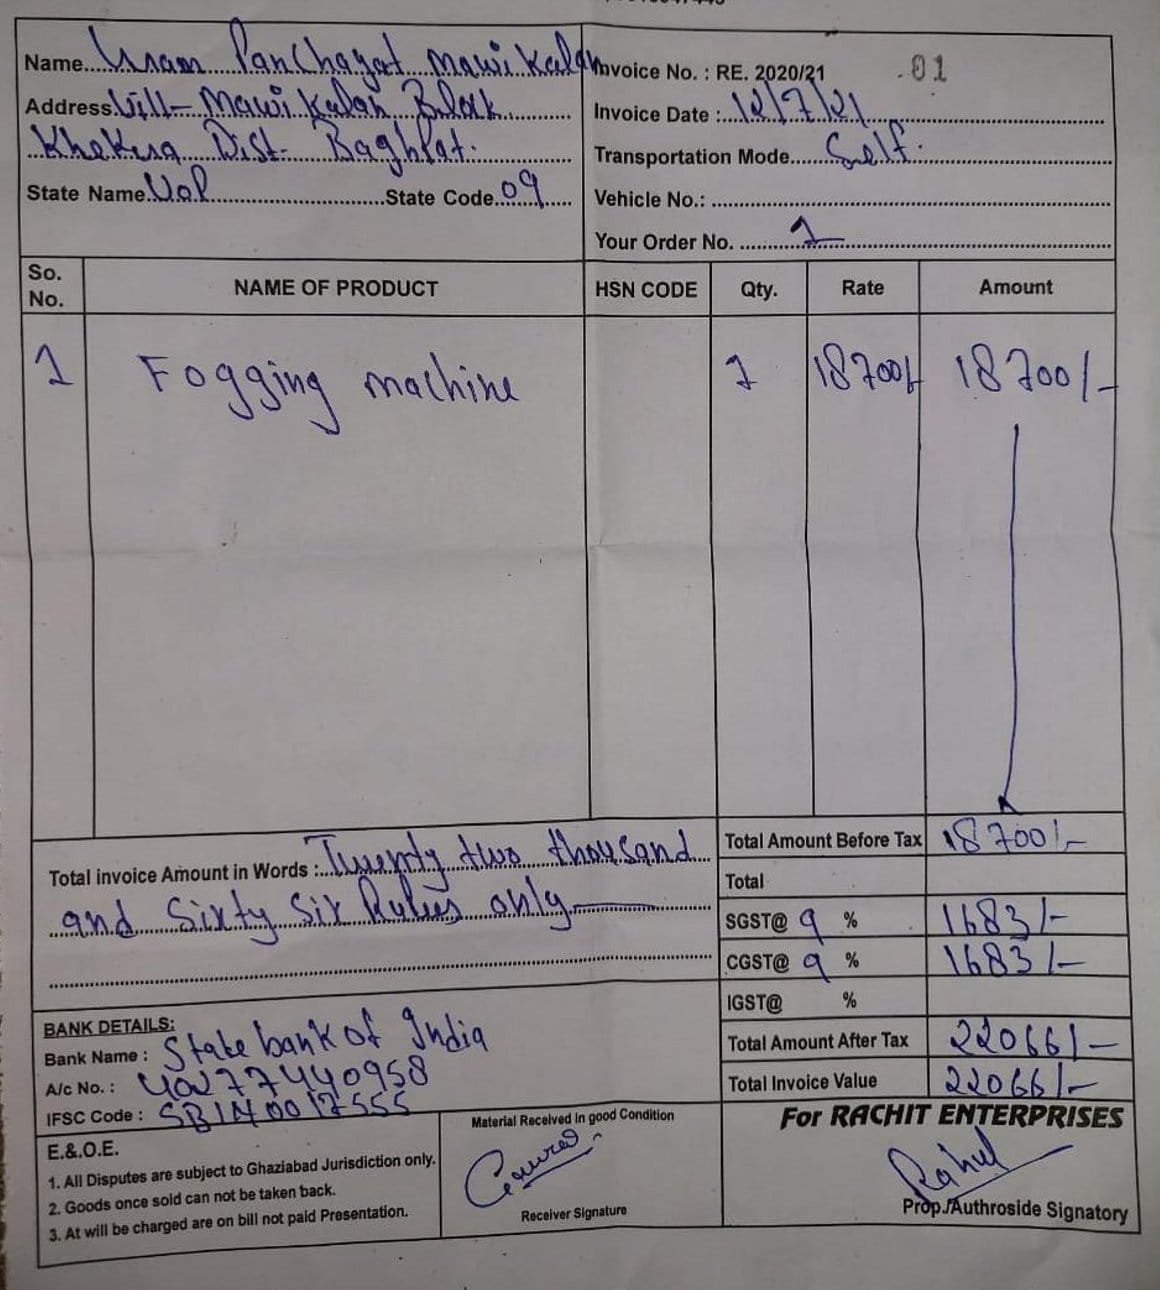 Name Gram Panchayat Mawi Kalan
Address Vill- Mawi Kalan Block
Khekra Dist- Baghpat.
State Name U.P State Code 09
Invoice No. : RE. 2020/21 .01
Invoice Date : 12/7/21
Transportation Mode Self.
Vehicle No.:
Your Order No. 1
So. No. NAME OF PRODUCT HSN CODE Qty. Rate Amount
1 Fogging machine 1 18700/- 18700/-
Total invoice Amount in Words : Twenty two thousand
and Sixty Six Rupees only
Total Amount Before Tax 18700/-
Total
SGST@ 9 % 1683/-
CGST@ 9 % 1683/-
IGST@ %
Total Amount After Tax 22066/-
Total Invoice Value 22066/-
BANK DETAILS:
Bank Name : State bank of India
A/c No. : 40277440958
IFSC Code : SBIN0017555
E.&.O.E.
1. All Disputes are subject to Ghaziabad Jurisdiction only.
2. Goods once sold can not be taken back.
3. At will be charged are on bill not paid Presentation.
Material Received in good Condition
Receiver Signature
For RACHIT ENTERPRISES
Rahul
Prop./Authroside Signatory